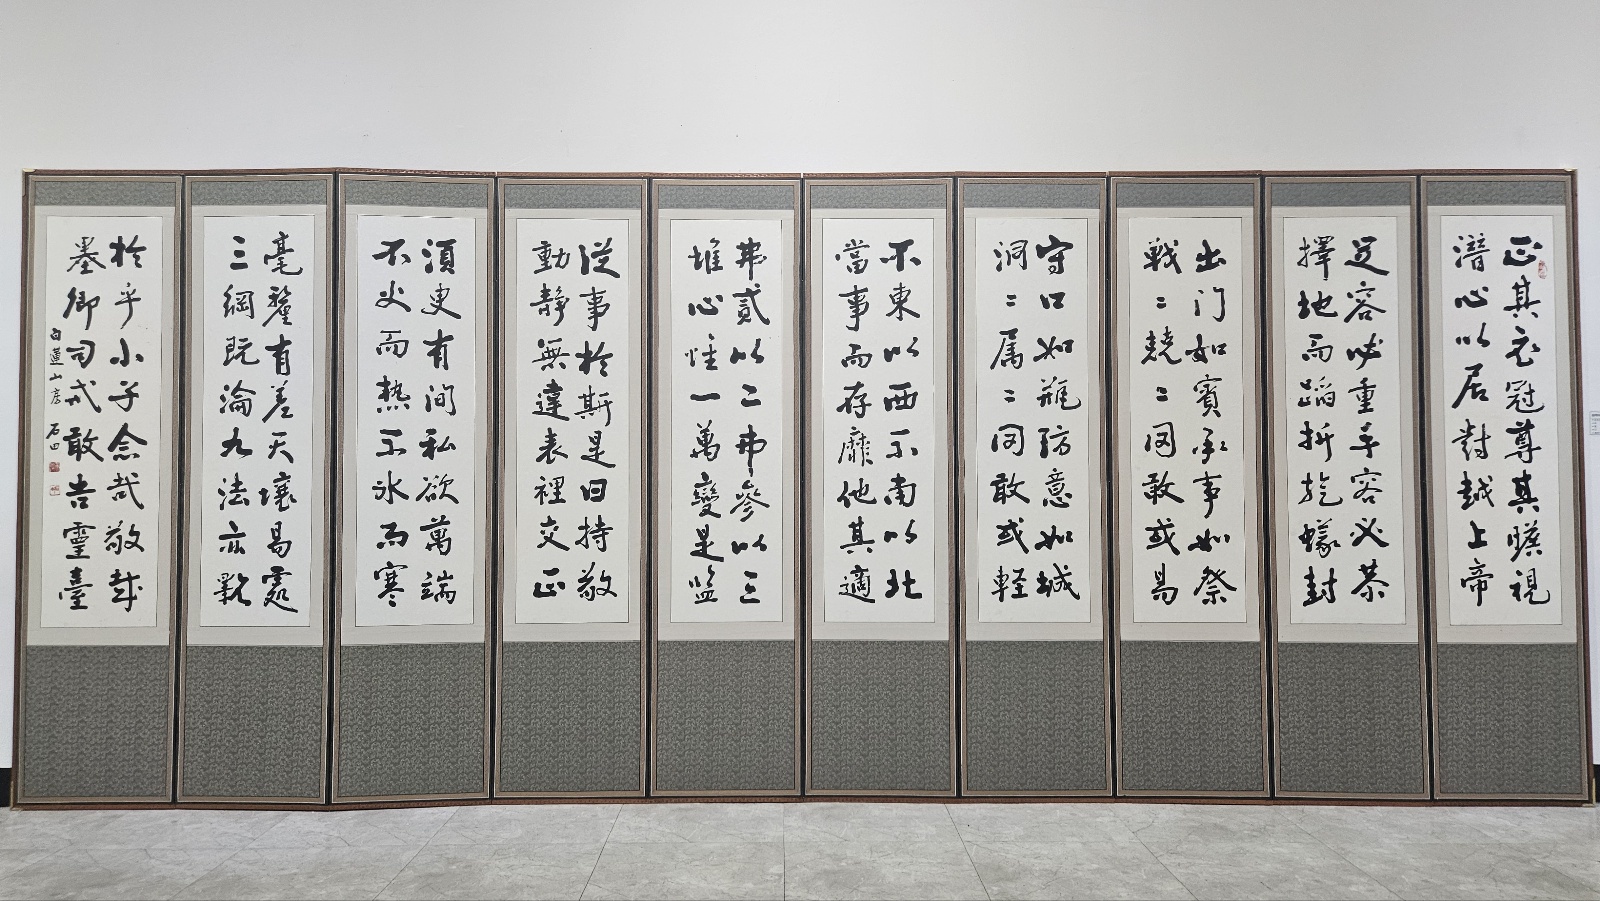 正其衣冠尊其瞻視
潛心以居對越上帝
足容必重手容必恭
擇地而蹈折旋蟻封
出门如賓承事如祭
戰〻兢〻罔敢或易
守口如瓶防意如城
洞〻属〻罔敢或軽
不東以西不南以北
當事而存靡他其適
弗貳以二弗參以三
惟心惟一萬變是监
從事於斯是曰持敬
動靜無違表裡交正
須臾有间私欲萬端
不火而熱不氷而寒
毫釐有差天壤易處
三綱既淪九法亦斁
於乎小子念哉敬哉
墨卿司戒敢告靈臺
白蓮山房 石田